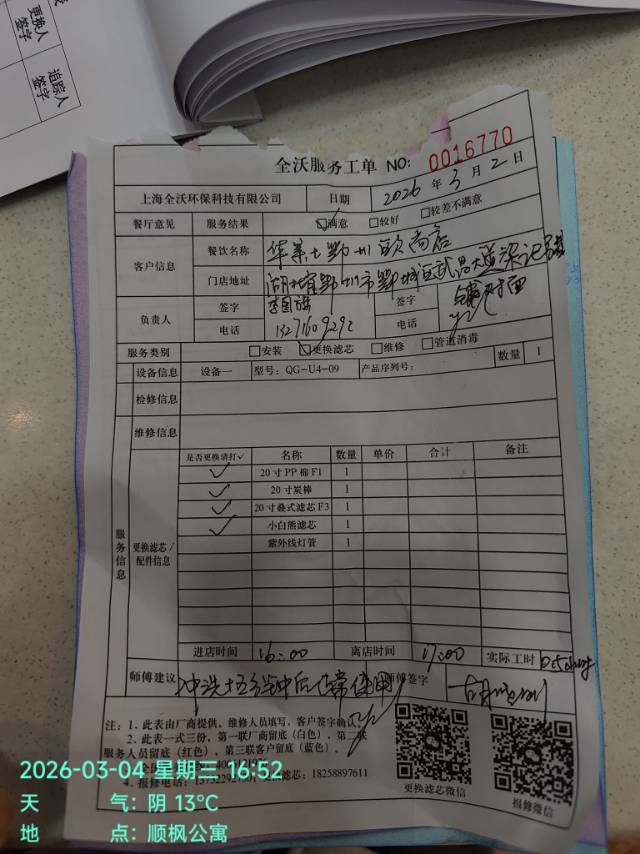 更换人
签字
追踪人
签字
全沃服务工单 NO: 0016770
上海全沃环保科技有限公司 日期 2026 年 3 月 2 日
餐厅意见 服务结果 ☑满意 □较好 □较差不满意
客户信息 餐饮名称 华莱士鄂州欧尚店
门店地址 湖北省鄂州市鄂城区武昌大道
负责人 签字 签字
电话 13271609292 电话
服务类别 □安装 ☑更换滤芯 □维修 □管道消毒
设备信息 设备一 型号: QG-U4-09 产品序列号: 数量 1
检修信息
维修信息
服务信息
更换滤芯/配件信息
是否更换请打✓ 名称 数量 单价 合计 备注
✓ 20寸PP棉F1 1
✓ 20寸炭棒 1
✓ 20寸叠式滤芯F3 1
✓ 小白熊滤芯 1
紫外线灯管 1
进店时间 16:00 离店时间 17:00 实际工时
师傅建议 冲洗十五分钟后正常使用 师傅签字
注: 1、此表由厂商提供, 维修人员填写, 客户签字确认。
2、此表一式三份, 第一联厂商留底(白色), 第二联
服务人员留底(红色), 第三联客户留底(蓝色)。
4、报修电话: 滤芯: 18258897611
更换滤芯微信
报修微信
2026-03-04 星期三 16:52
天 气: 阴 13℃
地 点: 顺枫公寓